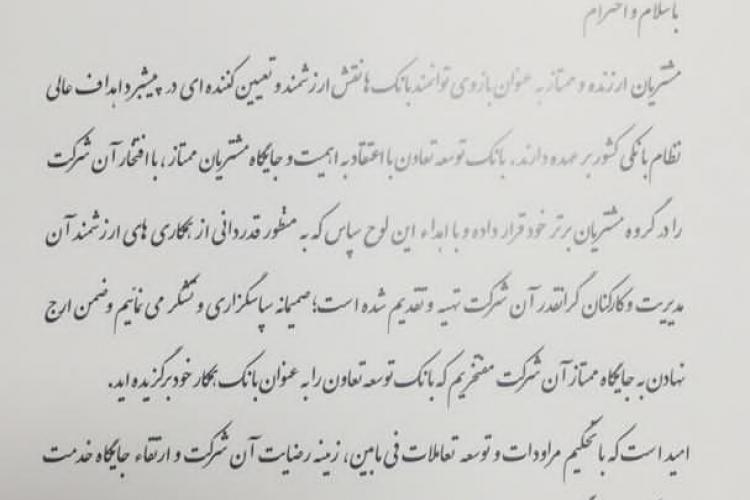 باسلام و احترام
مشتریان ارزنده و ممتاز به عنوان بازوی توانمند بانک ها نقش ارزشمند و تعیین کننده ای در پیشبرد اهداف عالی
نظام بانکی کشور بر عهده دارند. بانک توسعه تعاون با اعتقاد به اهمیت و جایگاه مشتریان ممتاز، با افتخار آن شرکت
را در گروه مشتریان برتر خود قرار داده و با اهداء این لوح سپاس که به منظور قدردانی از همکاری های ارزشمند آن
مدیریت و کارکنان گرانقدر آن شرکت تهیه و تقدیم شده است؛ صمیمانه سپاسگزاری و تشکر می نمائیم و ضمن ارج
نهادن به جایگاه ممتاز آن شرکت مفتخریم که بانک توسعه تعاون را به عنوان بانک همکار خود برگزیده اید.
امید است که با تحکیم مراودات و توسعه تعاملات فی مابین، زمینه رضایت آن شرکت و ارتقاء جایگاه خدمت